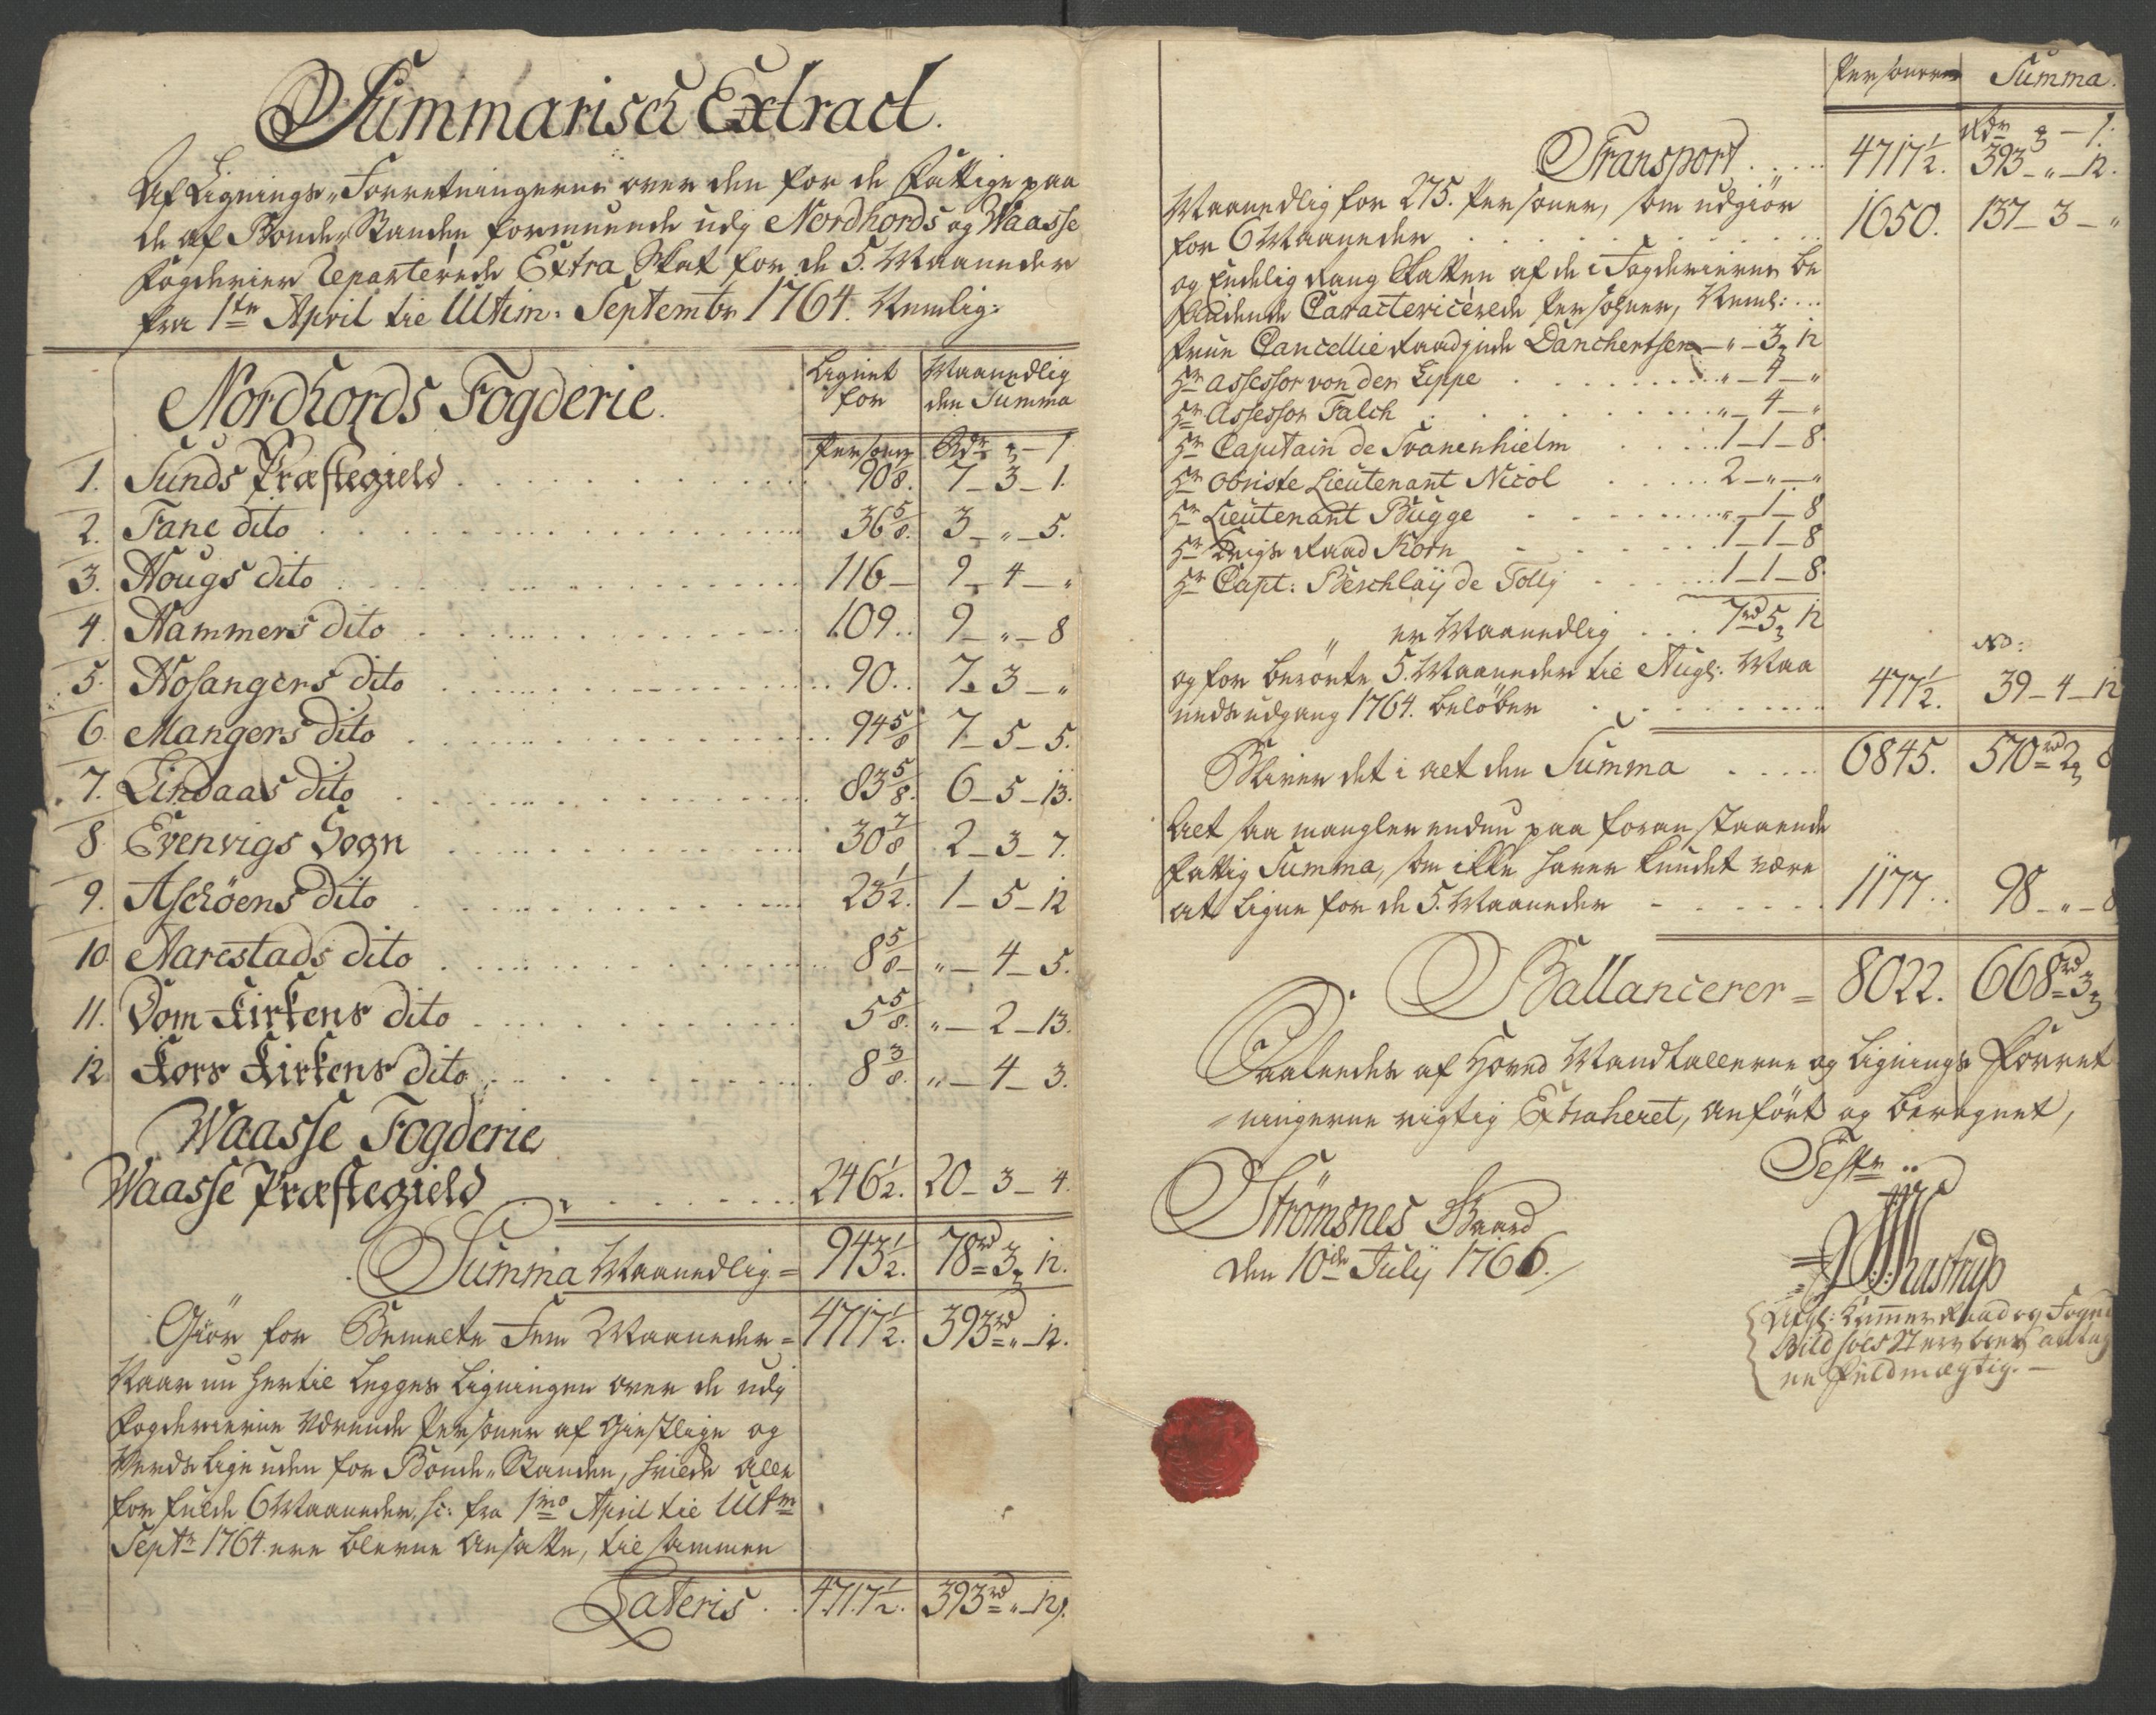 Summarisch Extract.
Af Lignings-Forretningerne over den for de Fattige paa
de af Bonde-Standen formuende udj Nordhords og Waasse
Fogderier Reparterede Extra Skat for de 5. Maaneder
fra 1ste April til Ultim: Septembr 1764. Nemlig:
Nordhords Fogderie.
Lignet for
Maanedlig den Summa
Personer Rdr ꝫ – 1
1. Sunds Præstegield 90⅛. 7 – 3 – 1.
2. Fane dito 36⅝. 3 – „ – 5.
3. Hougs dito 116 – 9 – 4 – „
4. Hammers dito 109.. 9 – „ – 8
5. Hosangers dito 90.. 7 – 3 – „
6. Mangers dito 94⅝ 7 – 5 – 5.
7. Lindaas dito 83⅝. 6 – 5 – 13.
8. Evenvigs Sogn 30⅞ 2 – 3 – 7.
9. Aschöens dito 23½. 1 – 5 – 12
10. Aarestads dito 8⅝ „ – 4 – 5.
11. Dom-Kirkens dito 5⅝. „ – 2 – 13.
12 Kors Kirkens dito 8⅜. „ – 4 – 3.
Waasse Fogderie
Waasse Præstegield 246½. 20 – 3 – 4.
Summa Maanedlig = 943½. 78rd 3ꝫ 12.
Giör for Bemelte Fem Maaneder = 4717½. 393rd „ – 12.
Naar nu hertil Legges Ligningen over de udj
Fogderierne værende Personer af Giestlige og
Verdslige uden for Bonde-Standen, hvilke alle
for fulde 6 Maaneder, sc: fra 1mo April til Ultm
Septr 1764. ere blevne Ansatte, til sammen
Lateris 4717½. 393rd „ – 12.
Personer Summa.
Rdr ꝫ – 1.
Transport 4717½. 393 – „ – 12.
Maanedlig for 275. Personer, som udgiör
for 6 Maaneder 1650. 137 – 3 – „
og Endelig Rang Skatten af de i Fogderierne be
findende Caractericerede Personer, Neml: ...
Frue Cancellie Raadinde Danchertsen – „ – 3ꝫ 12
Hr Assessor von der Lippe „ – 4 – „
Hr Assessor Falch „ – 4 – „
Hr Capitain de Svanenhielm 1 – 1 – 8.
Hr Obriste Lieutenant Nicol 2 – „ – „
Hr Lieutenant Bugge „ – 1 – 8
Hr Krigs Raad Korn 1 – 1 – 8
Hr Capt: Berchlaij de Tolly 1 – 1 – 8.
er Maanedlig 7rd 5ꝫ 12
og for berörte 5. Maaneder til Augl: Maa
neds udgang 1764. belöber 477½. 39 – 4 – 12
NB:
Bliver det i alt den Summa 6845. 570rd 2ꝫ 8
Alt saa mangler endnu paa foranstaaende
Fattig Summa, som ikke haver kundet være
at Ligne for de 5. Maaneder 1177.. 98 – „ – 8
Ballancerer = 8022. 668rd 3ꝫ
Saaledes af Hoved Mandtallerne og Lignings Forret
ningerne rigtig Extraheret, anfört og beregnet,
Test:
Strömsnes Gaard
den 10de Julij 1766.
Afgl: Kammer Raad og Foged
Bildsöes Sterboes antag
ne Fuldmægtig. –